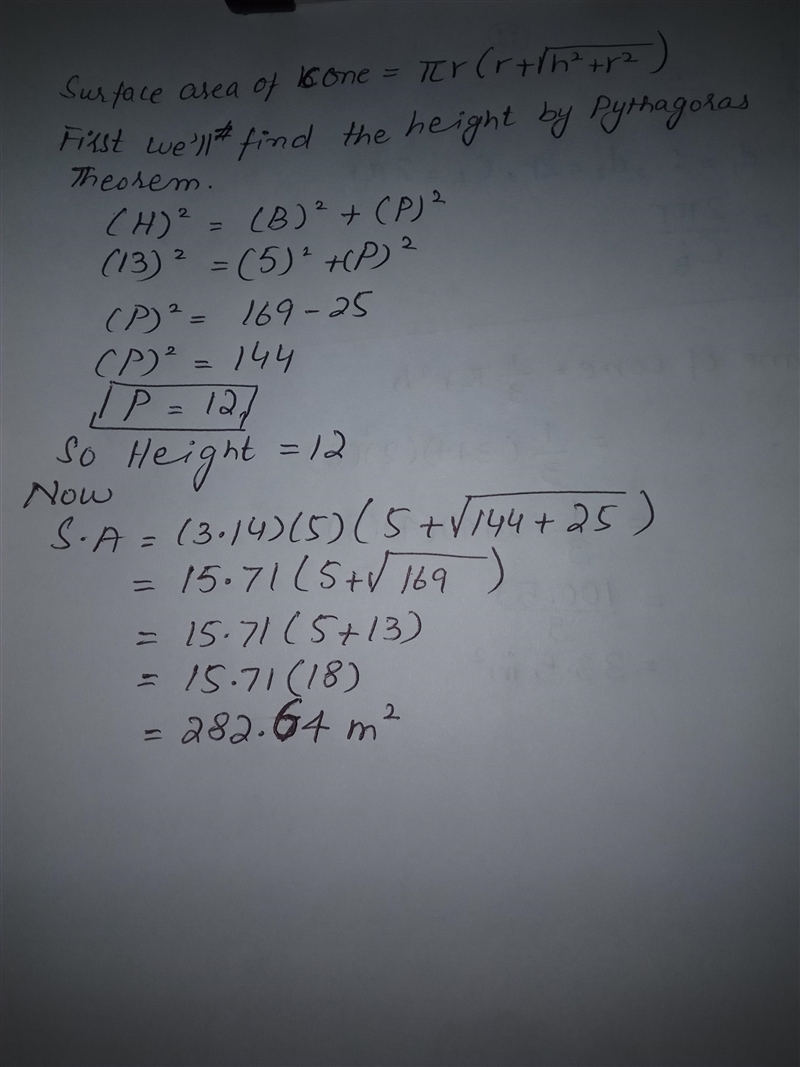 Surface area of cone = πr(r+√h²+r²)
First we'll find the height by Pythagoras
Theorem.
(H)² = (B)² + (P)²
(13)² = (5)² + (P)²
(P)² = 169 - 25
(P)² = 144
P = 12
So Height = 12
Now
S.A = (3.14)(5)(5+√144+25)
= 15.71(5+√169)
= 15.71(5+13)
= 15.71(18)
= 282.64 m²